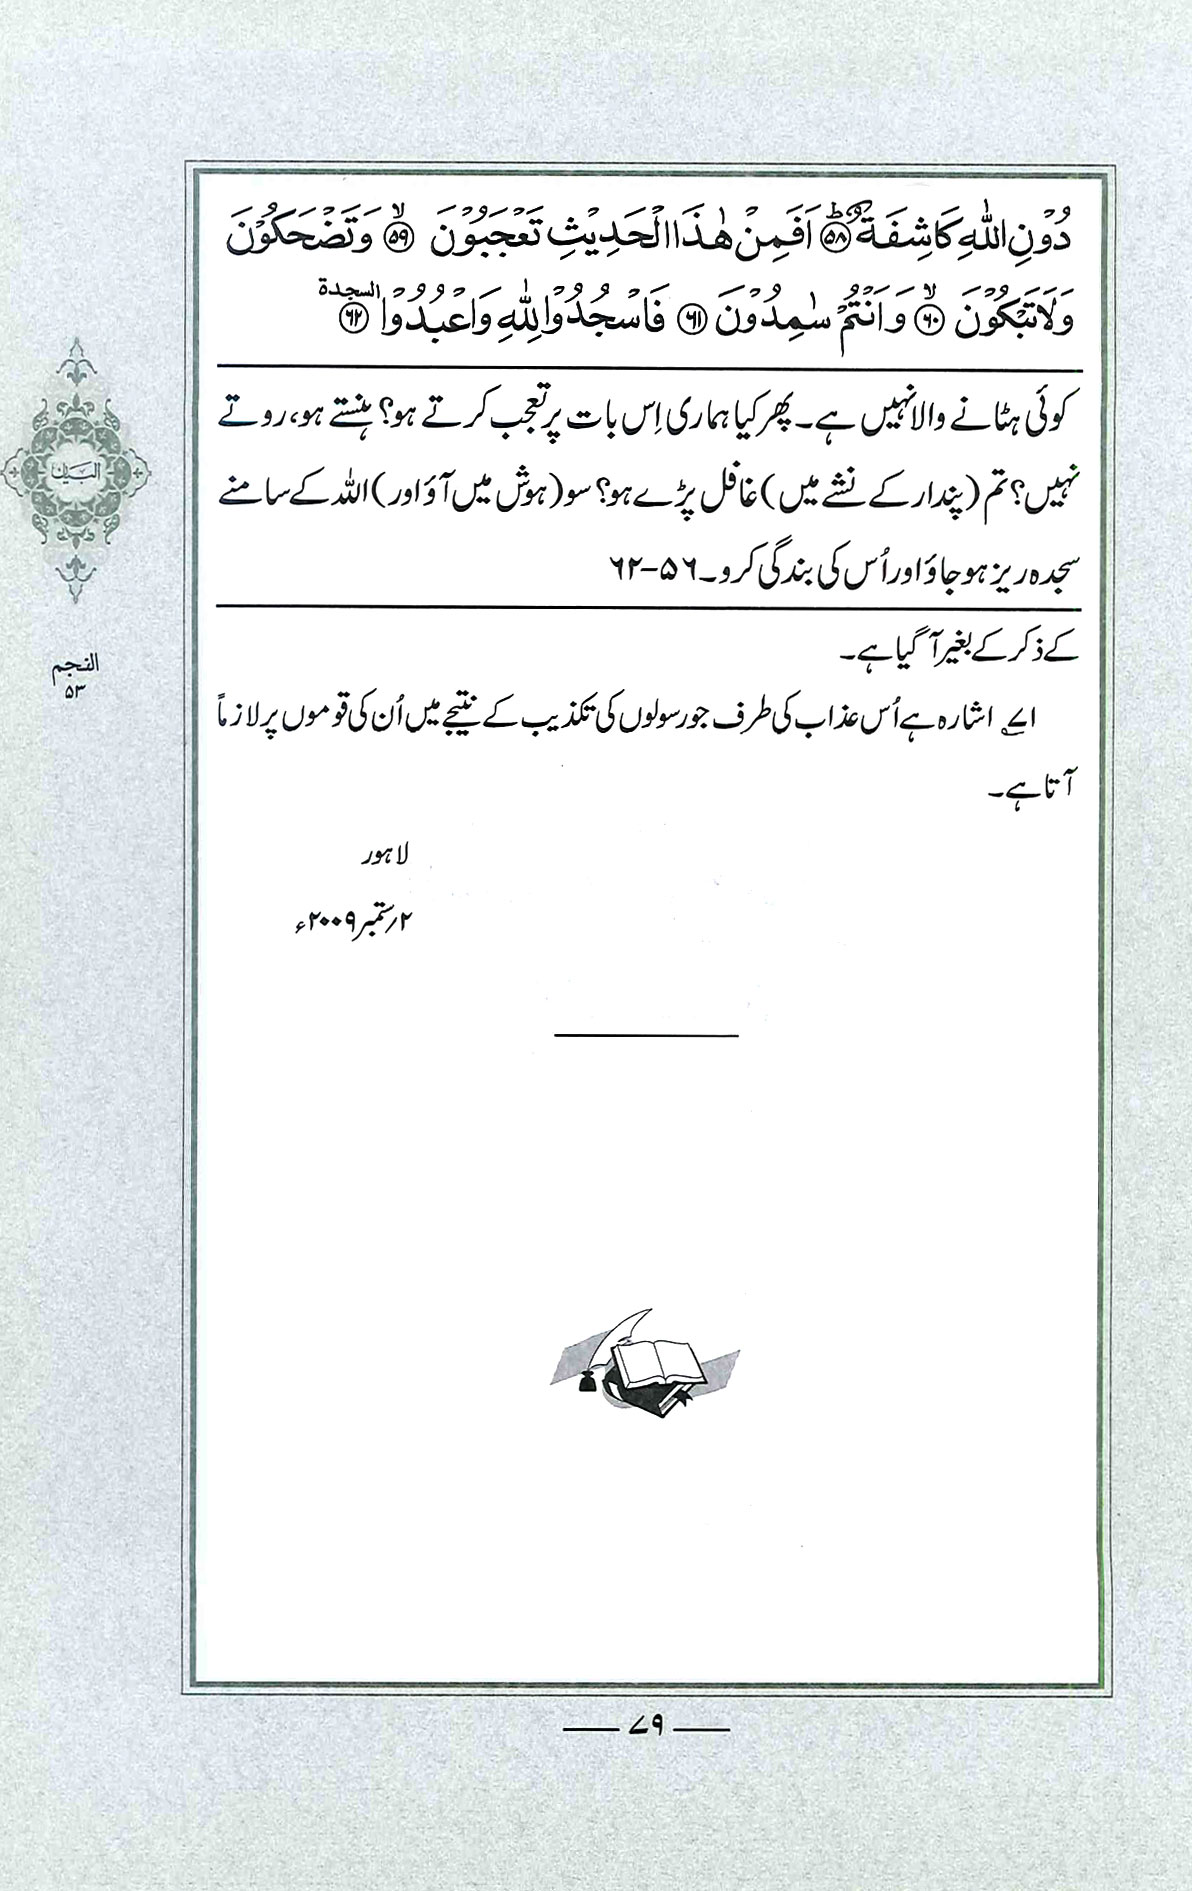 دُوۡنِ اللّٰہِ کَاشِفَۃٌ ﴿ؕ۵۸﴾ اَفَمِنۡ ہٰذَا الۡحَدِیۡثِ تَعۡجَبُوۡنَ ﴿ۙ۵۹﴾ وَ تَضۡحَکُوۡنَ
وَ لَا تَبۡکُوۡنَ ﴿ۙ۶۰﴾ وَ اَنۡتُمۡ سٰمِدُوۡنَ ﴿۶۱﴾ فَاسۡجُدُوۡا لِلّٰہِ وَ اعۡبُدُوۡا ﴿۶۲﴾ السجدة
کوئی ہٹانے والا نہیں ہے۔ پھر کیا ہماری اِس بات پر تعجب کرتے ہو؟ ہنستے ہو، روتے
نہیں؟ تم (پندار کے نشے میں) غافل پڑے ہو؟ سو (ہوش میں آؤ اور) اللہ کے سامنے
سجدہ ریز ہو جاؤ اور اُس کی بندگی کرو۔ ۵۶-۶۲
کے ذکر کے بغیر آ گیا ہے۔
۷۱؎ اشارہ ہے اُس عذاب کی طرف جو رسولوں کی تکذیب کے نتیجے میں اُن کی قوموں پر لازماً
آتا ہے۔
لاہور
۲/ ستمبر ۲۰۰۹ء
البیان
النجم
۵۳
۷۹